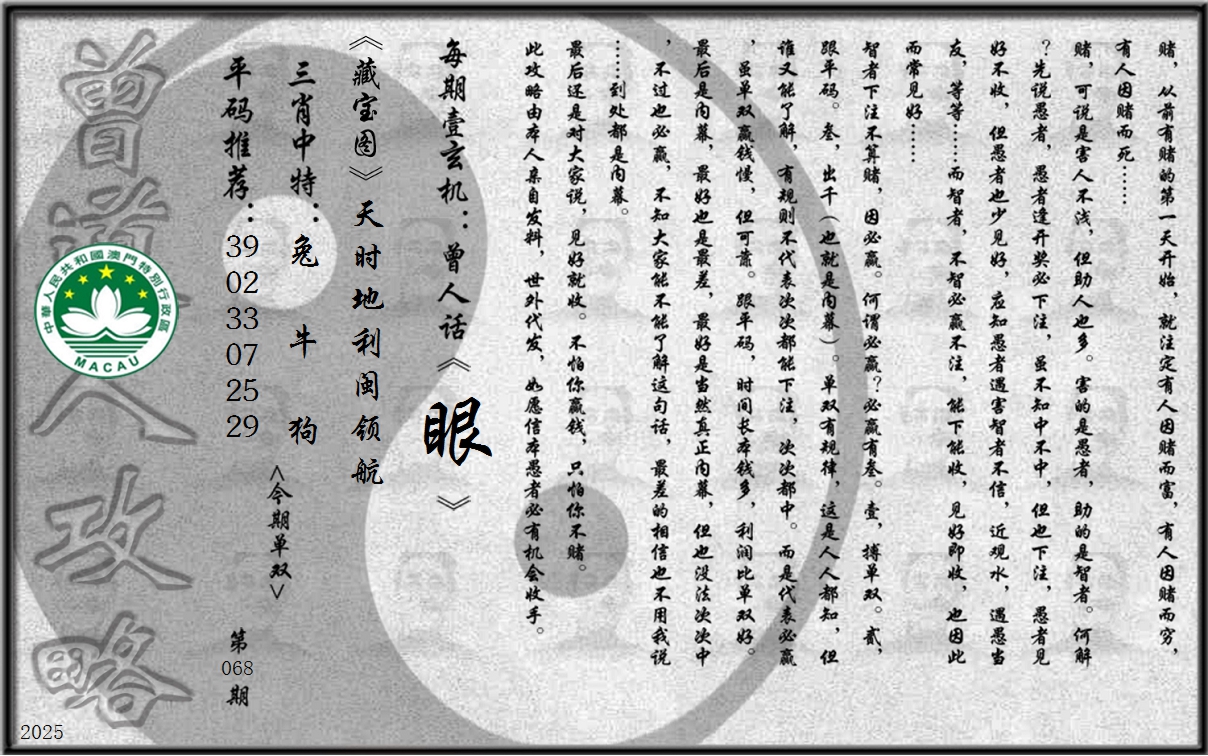 赌，从前有赌的第一天开始，就注定有人因赌而富，有人因赌而穷，
有人因赌而死……
赌，可说是害人不浅，但助人也多。害的是愚者，助的是智者。何解
？先说愚者，愚者逢开奖必下注，虽不知中不中，但也下注，愚者见
好不收，但愚者也少见好，应知愚者遇害智者不信，近观水，遇愚当
友，等等……而智者，不智必赢不注，能下能收，见好即收，也因此
而常见好……
智者下注不算赌，因必赢。何谓必赢？必赢有叁。壹，搏单双。贰，
跟平码。叁，出千（也就是内幕）。单双有规律，这是人人都知，但
谁又能了解，有规则不代表次次都能下注，次次都中。而是代表必赢
，虽单双赢钱慢，但可靠。跟平码，时间长本钱多，利润比单双好。
最后是内幕，最好也是最差，最好是当然真正内幕，但也没法次次中
，不过也必赢，不知大家能不能了解这句话，最差的相信也不用我说
……到处都是内幕。
最后还是对大家说，见好就收。不怕你赢钱，只怕你不赌。
此攻略由本人亲自发料，世外代发，如愿信本愚者必有机会收手。
每期壹玄机：曾人话《眼》
《藏宝图》天时地利闽领航
三肖中特：兔 牛 狗
<今期单双>
平码推荐：39 02 33 07 25 29
第068期
曾道人攻略
中華人民共和國澳門特別行政區
MACAU
2025